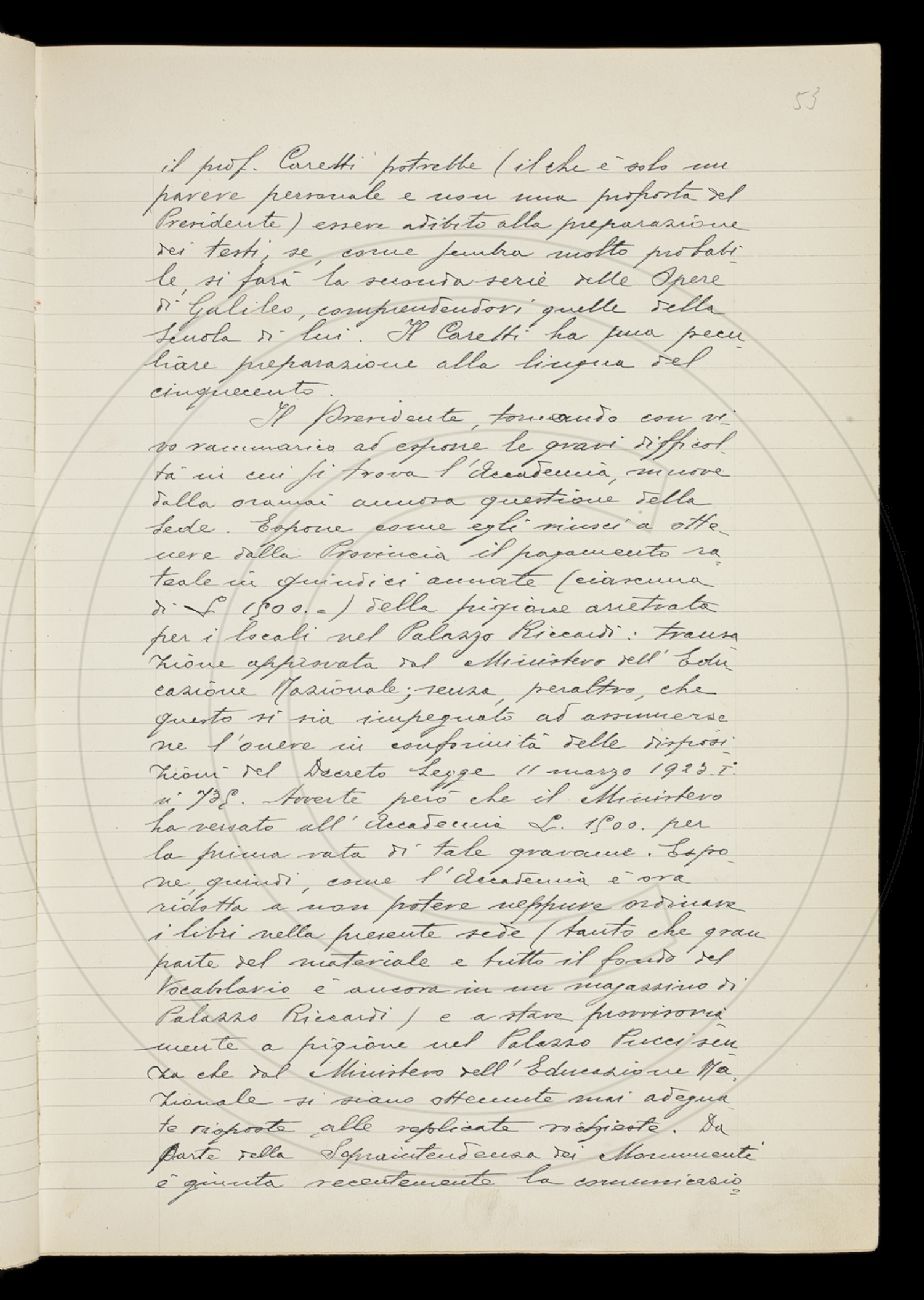 53
il prof. Caretti potrebbe (il che è solo un
parere personale e non una proposta del
Presidente) essere adibito alla preparazione
dei testi, se, come sembra molto probabi-
le, si farà la seconda serie delle Opere
di Galileo, comprendendovi quelle della
Scuola di lui. Il Caretti ha una pecu-
liare preparazione alla lingua del
cinquecento.
Il Presidente, tornando con vi-
vo rammarico ad esporre le gravi difficol-
tà in cui si trova l'Accademia, muove
dalla oramai annosa questione della
Sede. Espone come egli riuscì a otte-
nere dalla Provincia il pagamento ra-
teale in quindici annate (ciascuna
di L 1500.=) della pigione arretrata
per i locali nel Palazzo Riccardi: transa
zione approvata dal Ministero dell'Edu
cazione Nazionale; senza, peraltro, che
questo si sia impegnato ad assumerse
ne l'onere in conformità delle disposi-
zioni del Decreto Legge 11 marzo 1923.I
n° 735. Avverte però che il Ministero
ha versato all'Accademia L. 1500. per
la prima rata di tale gravame. Espo-
ne, quindi, come l'Accademia è ora
ridotta a non potere neppure ordinare
i libri nella presente sede (tanto che gran
parte del materiale e tutto il fondo del
Vocabolario è ancora in un magazzino di
Palazzo Riccardi) e a stare provvisoria
mente a pigione nel Palazzo Pucci sen
za che dal Ministero dell'Educazione Na-
zionale si siano ottenute mai adegua
te risposte alle replicate richieste. Da
parte della Sopraintendenza dei Monumenti
è giunta recentemente la comunicazio